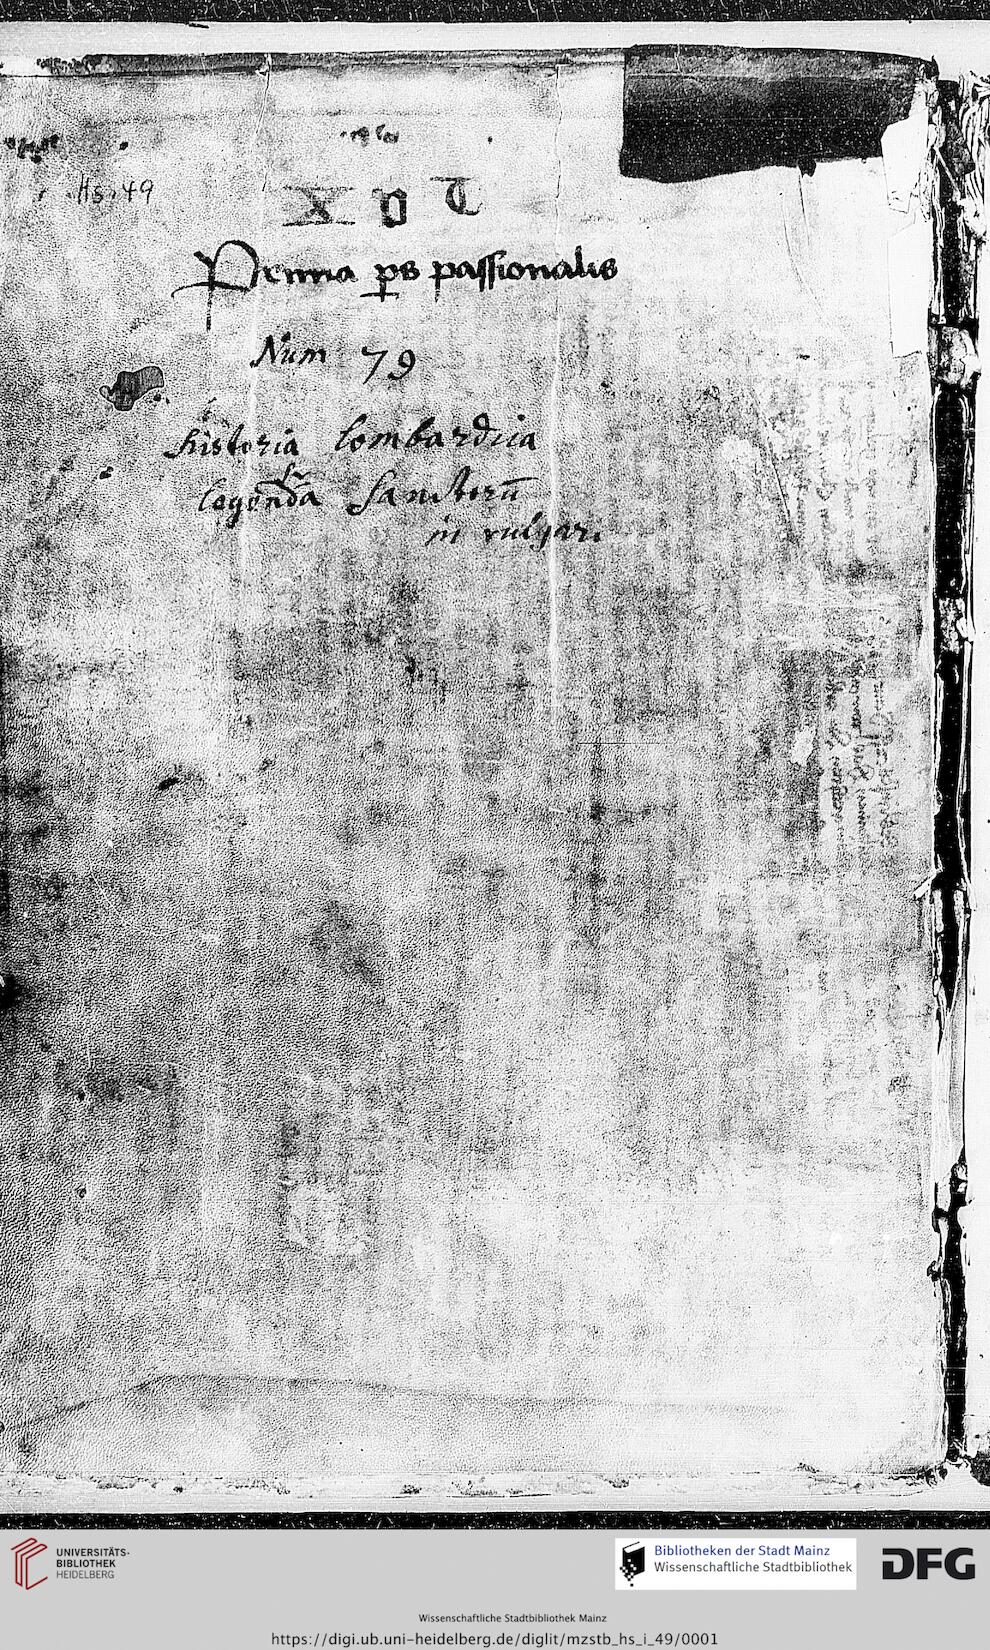 Hs. 49
X D T
Pemna ps passionalis
Num 79
historia lombardica
legenda sanctorū
in vulgari
UNIVERSITÄTS-
BIBLIOTHEK
HEIDELBERG
Bibliotheken der Stadt Mainz
Wissenschaftliche Stadtbibliothek
DFG
Wissenschaftliche Stadtbibliothek Mainz
https://digi.ub.uni-heidelberg.de/diglit/mzstb_hs_i_49/0001